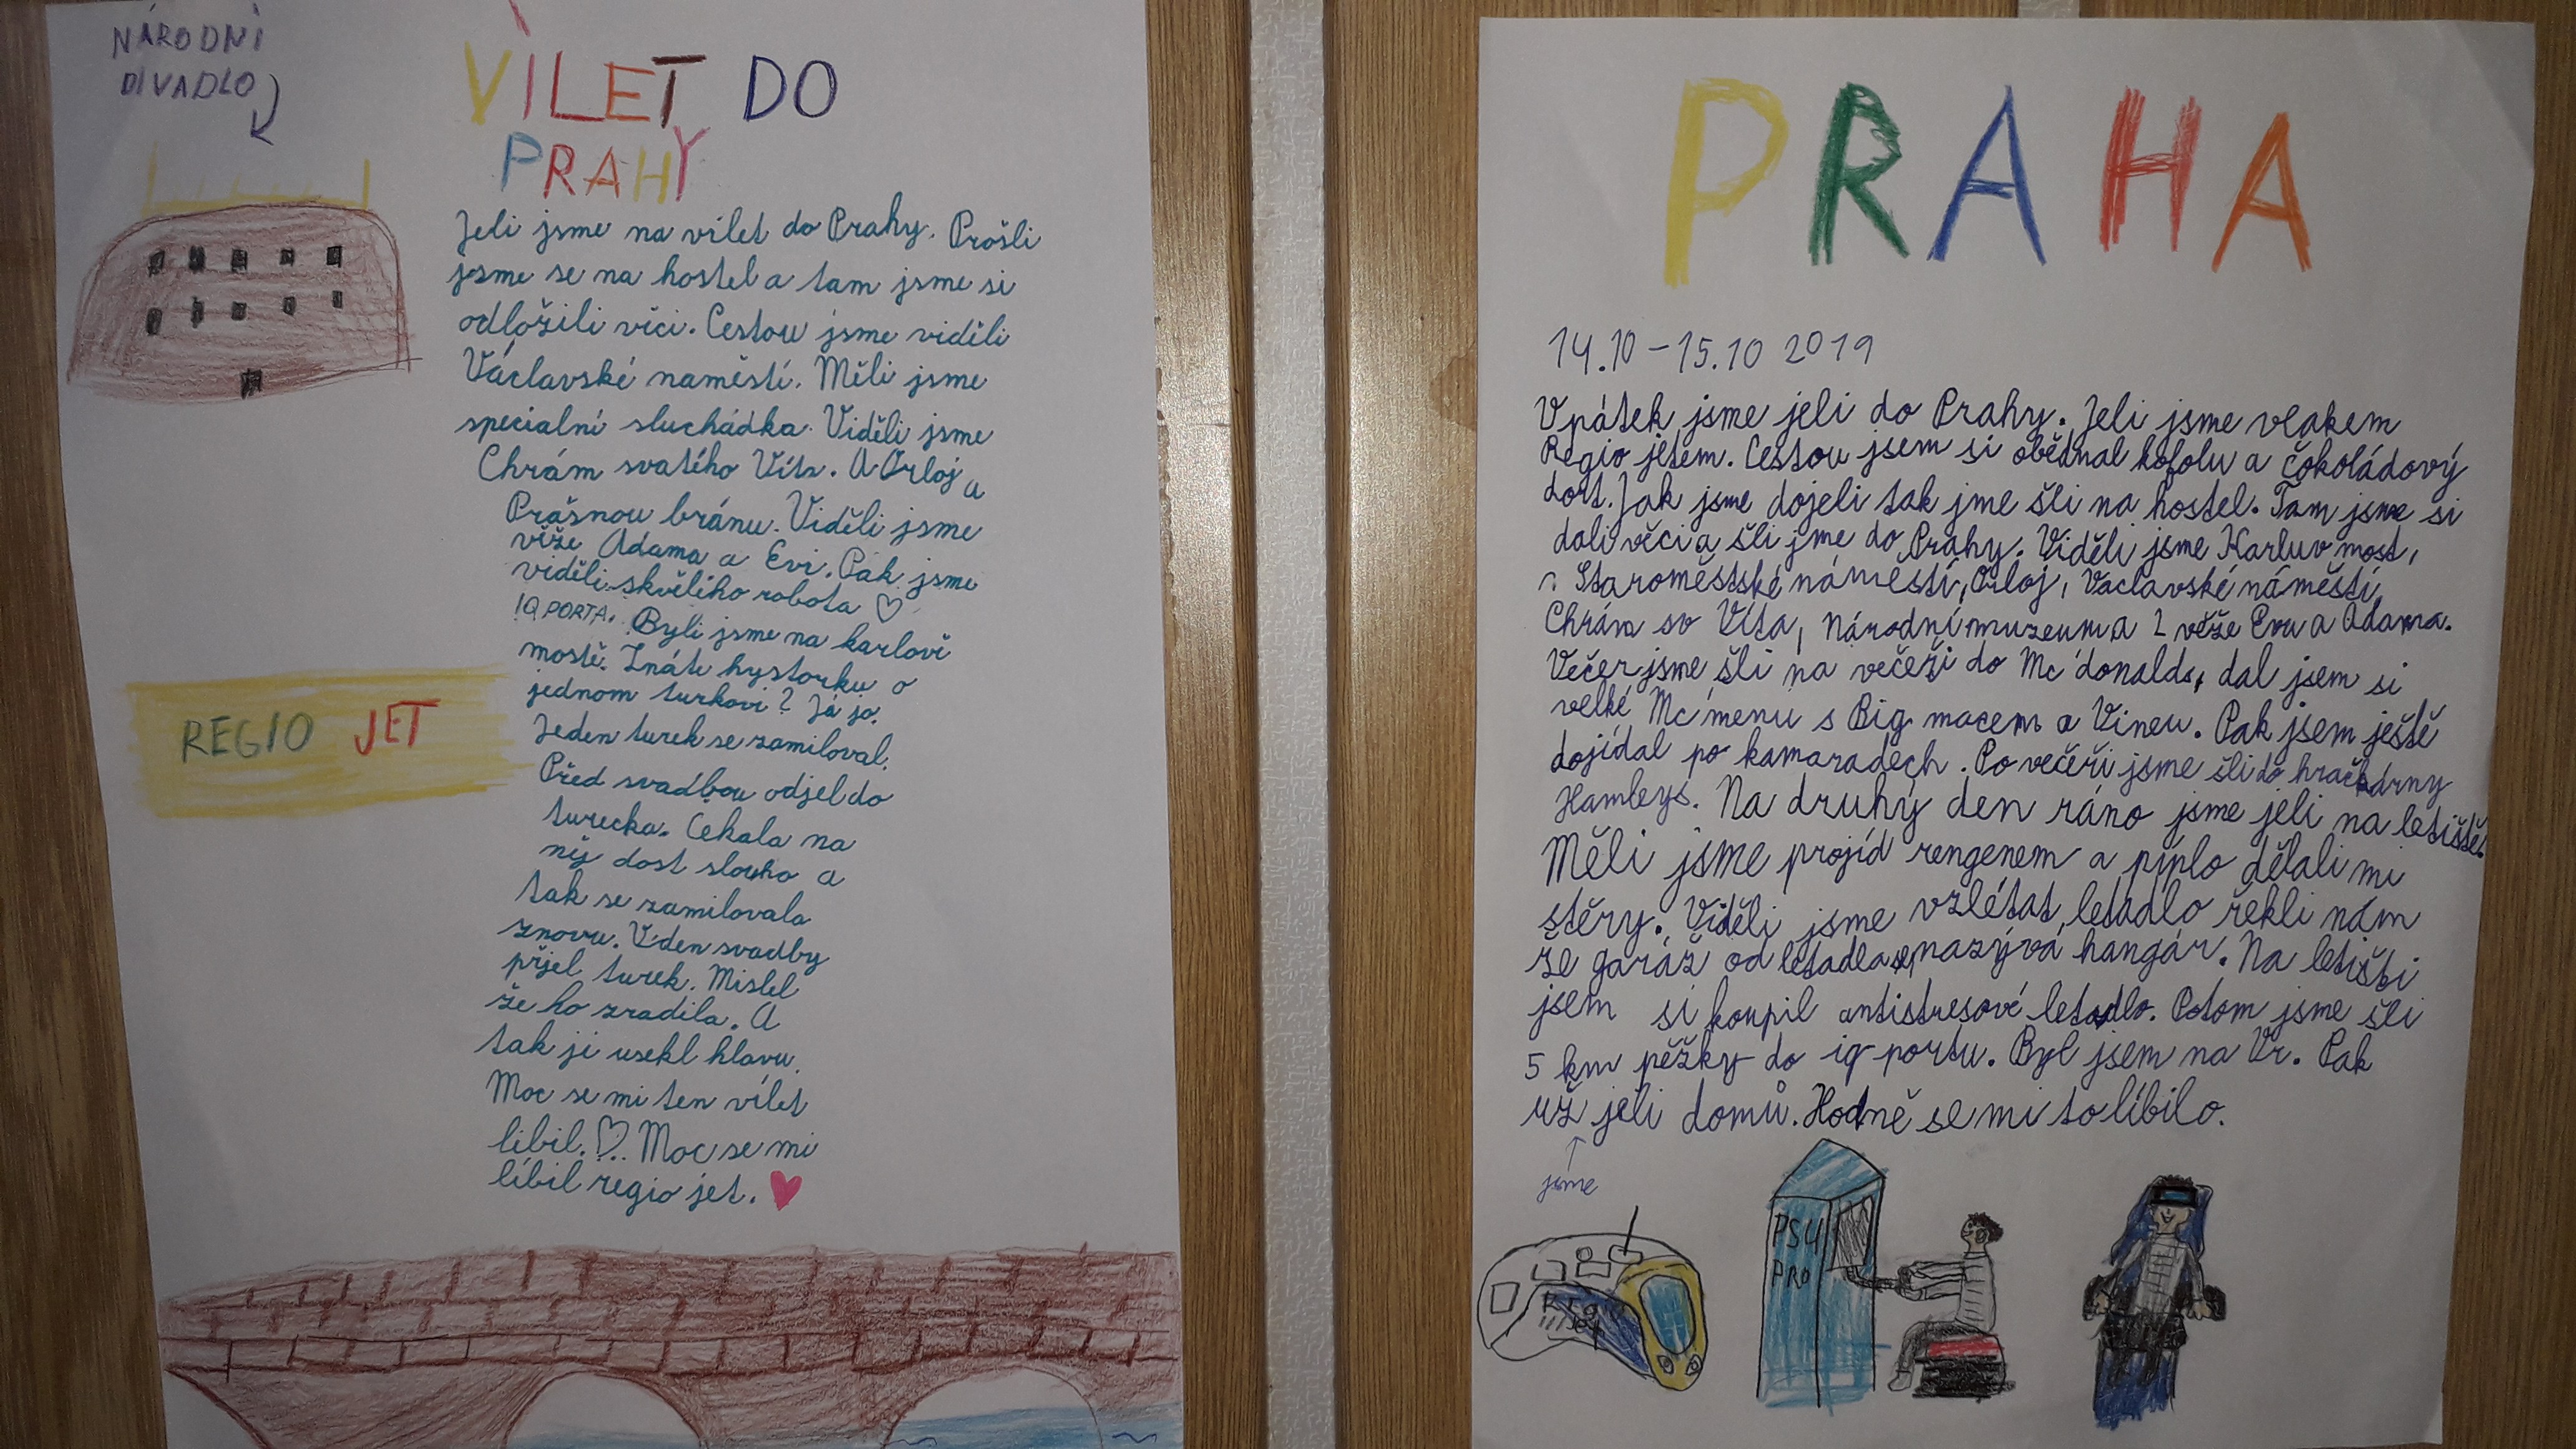 NÁRODNÍ
DIVADLO
VÍLET DO
PRAHY
Jeli jsme na vílet do Prahy. Prošli
jsme se na hostel a tam jsme si
odložili věci. Cestou jsme viděli
Václavské naměstí. Měli jsme
specialní sluchádka. Viděli jsme
Chrám svatého Víta. A Orloj a
Prašnou bránu. Viděli jsme
věže Adama a Evi. Pak jsme
viděli skvěliho robota ♡
IQ PORTA. Byli jsme na karlově
mostě. Znáte hystorku o
jednom turkovi? Já jo.
Jeden turek se zamiloval.
Před svadbou odjel do
turecka. Čekala na
něj dost slouho a
tak se zamilovala
znovu. V den svadby
přjel turek. Mislel
že ho zradila. A
tak ji usekl hlavu.
Moc se mi ten vílet
líbil. ♡ Moc se mi
líbil regio jet. ♥
REGIO JET
PRAHA
14.10 - 15.10 2019
V pátek jsme jeli do Prahy. Jeli jsme vlakem
Regio jetem. Cestou jsem si obědnal kofolu a čokoládový
dort. Jak jsme dojeli tak jme šli na hostel. Tam jsme si
dali věci a šli jme do Prahy. Viděli jsme Karluv most,
Staroměstské náměstí, Orloj, Václavské náměstí,
Chrám sv Víta, Národní muzeum a 2 věže Evu a Adama.
Večer jsme šli na večeři do Mc'donalds, dal jsem si
velké Mc'menu s Big macem a Vineu. Pak jsem ještě
dojídal po kamaradech. Po večeři jsme šli do hračkárny
Hamleys. Na druhý den ráno jsme jeli na letiště.
Měli jsme projíd rengenem a píplo dělali mi
stěry. Viděli jsme vzlétat letadlo řekli nám
že garáž od letadla se nazývá hangár. Na letišti
jsem si koupil antistresové letadlo. Potom jsme šli
5 km pěžky do iq portu. Byl jsem na Vr. Pak
už jeli domů. Hodně se mi to líbilo.
jsme
PS4
PRO